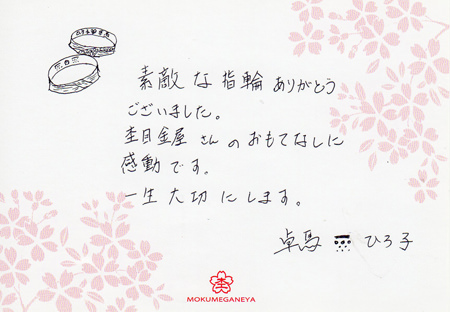 素敵な指輪ありがとう
ございました。
杢目金屋さんのおもてなしに
感動です。
一生大切にします。
卓馬 ひろ子
杢
MOKUMEGANEYA